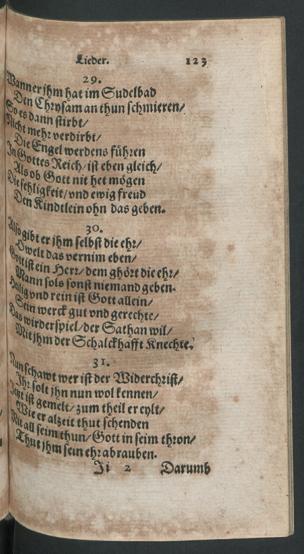 Lieder. 123
29.
Wanner jhm hat im Sudelbad
Den Chrysam an thun schmieren/
So es dann stirbt/
Nicht mehr verdirbt/
Die Engel werdens führen
In Gottes Reich/ ist eben gleich/
Als ob Gott nit het mögen
Die sehligkeit/ vnd ewig freud
Den Kindtlein ohn das geben.
30.
Also gibt er jhm selbst die ehr/
O welt das vernim eben/
Gott ist ein Herr/ dem ghört die ehr/
Mann sols sonst niemand geben.
Heilig vnd rein ist Gott allein/
Sein werck gut vnd gerechte/
Das wirderspiel/ der Sathan wil/
Mit jhm der Schalckhafft Knechte.
31.
Nun schawt wer ist der Widerchrist/
Jhr solt jhn nun wol kennen/
Jetzt ist gemelt/ zum theil er eylt/
Wie er alzeit thut schenden
Mit all seim thun/ Gott in seim thron/
Thut jhm sein ehr abrauben.
Ii 2 Darumb